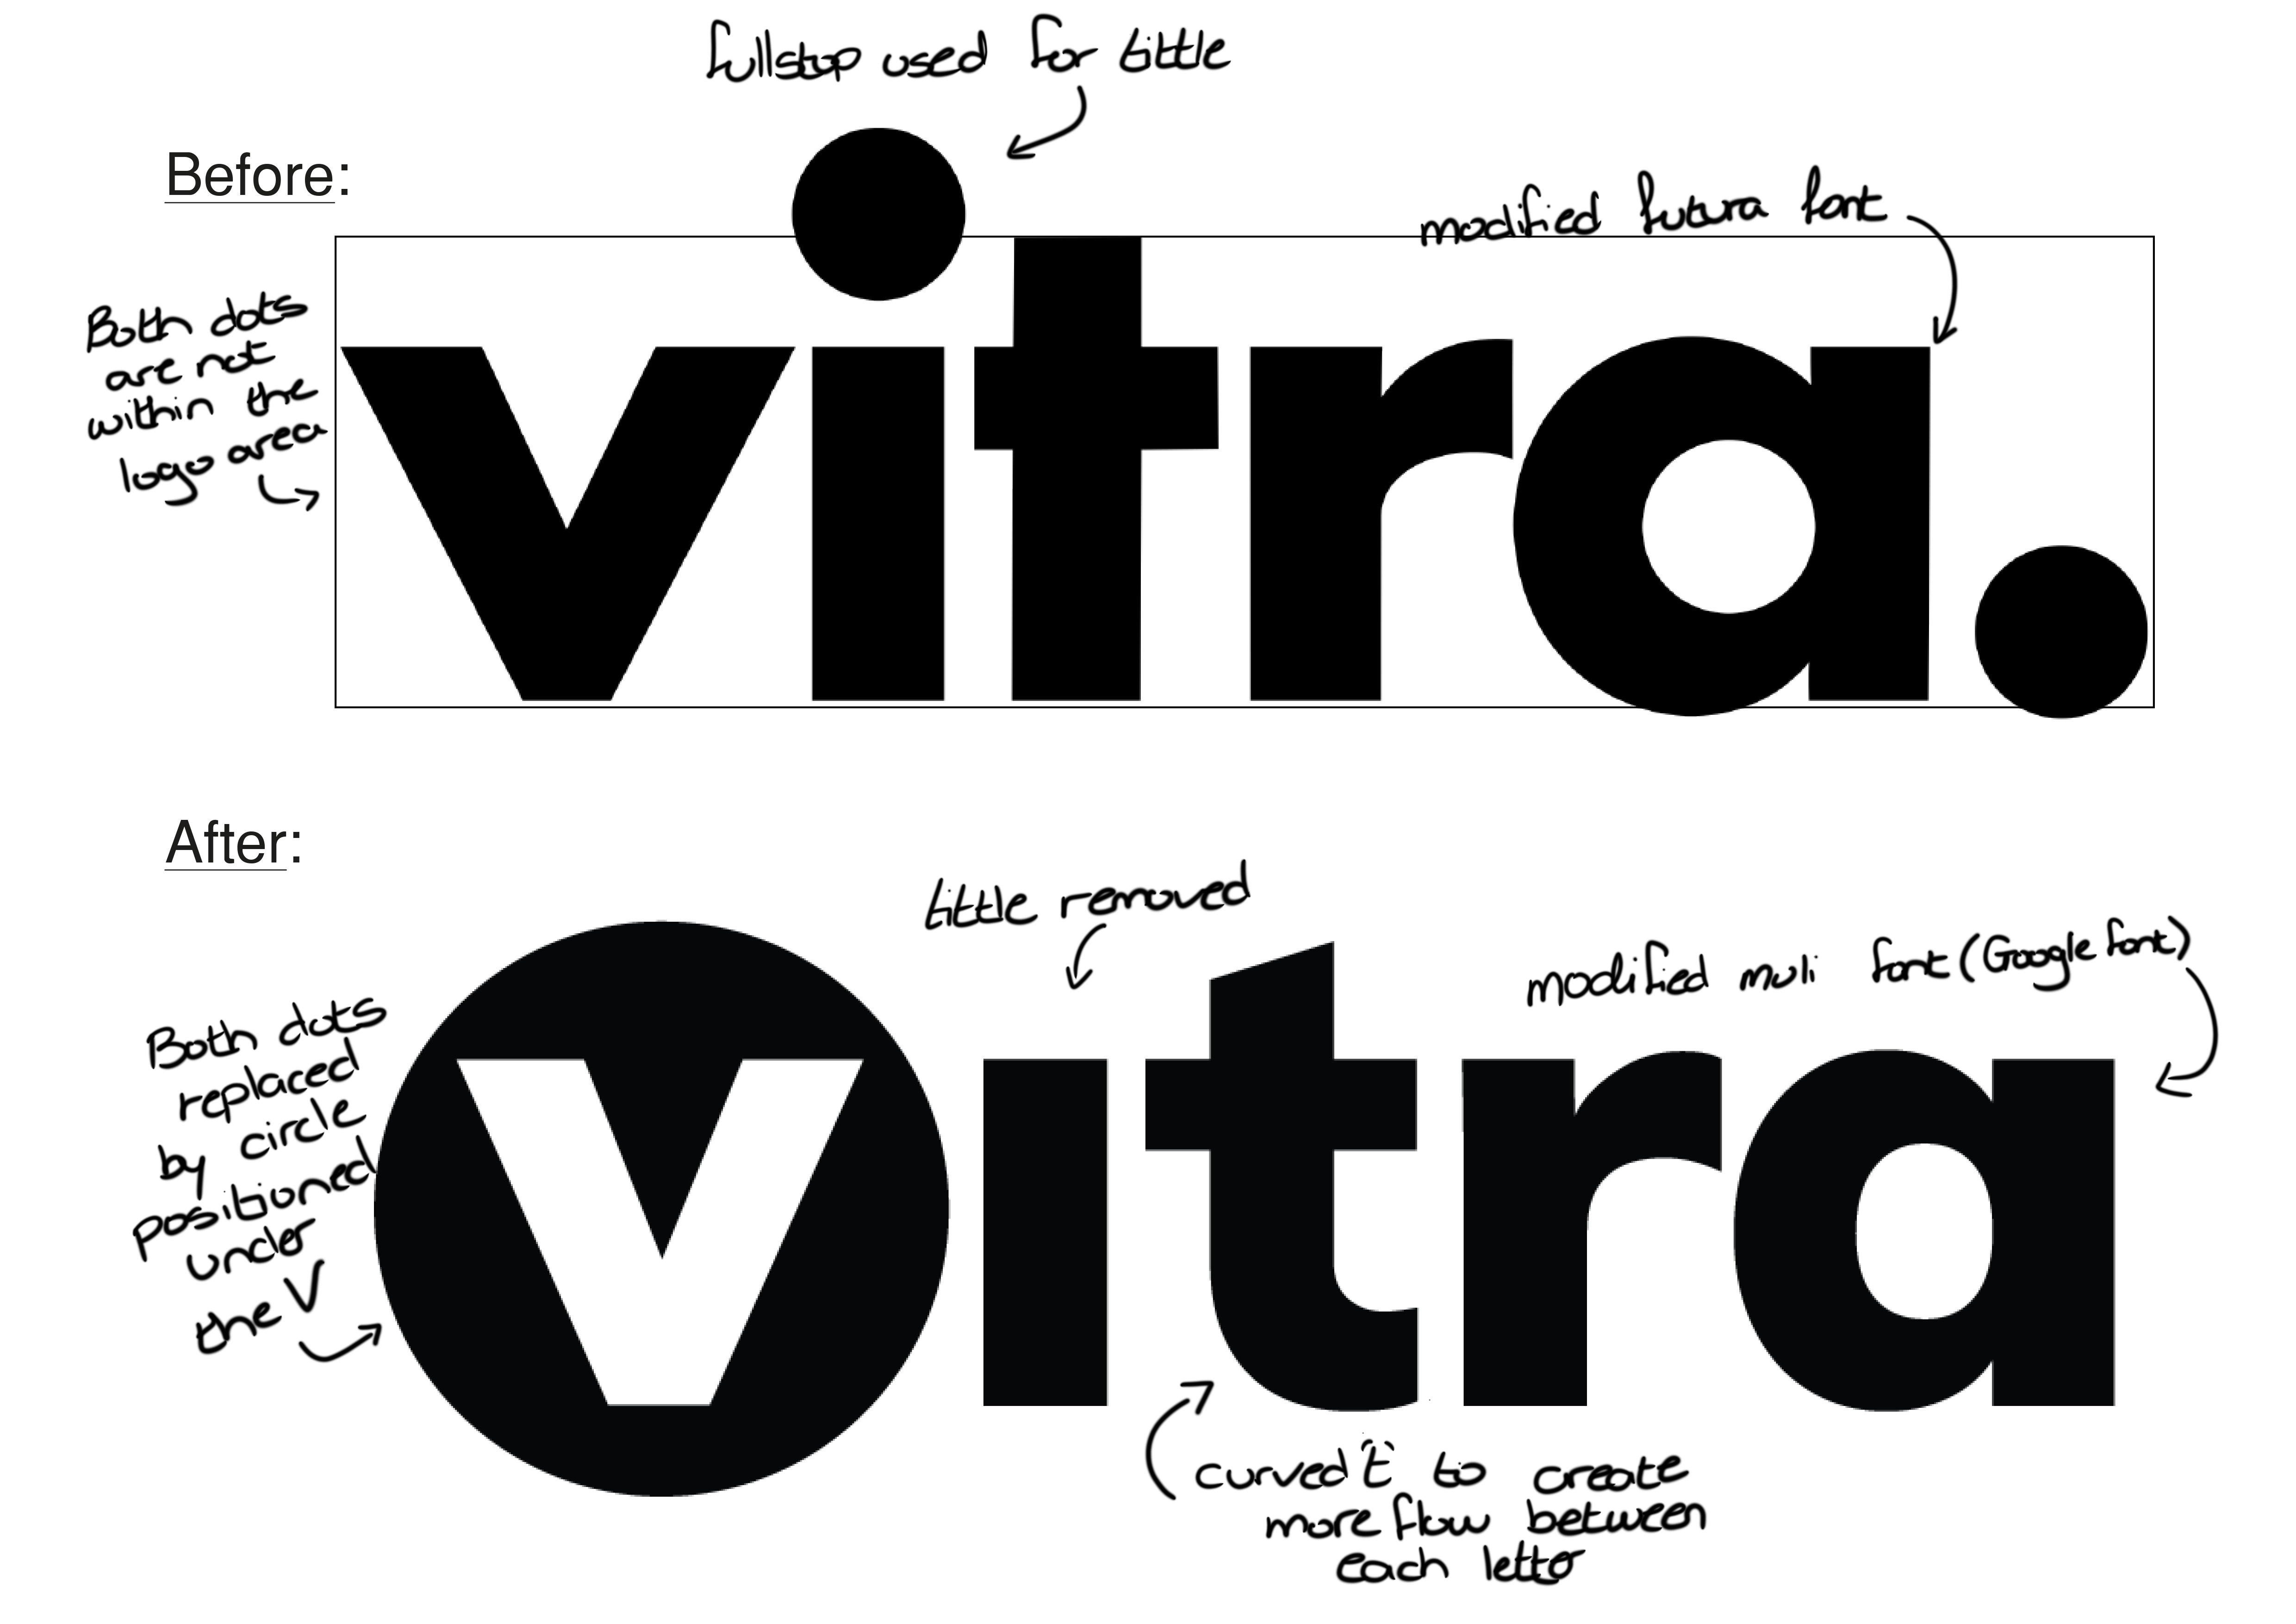 fullstop used for tittle
Before:
modified futura font
Both dots
are not
within the
logo area
vitra.
After:
tittle removed
modified muli font (Google font)
Both dots
replaced
by circle
positioned
under
the V
vıtra
curved "t" to create
more flow between
each letter